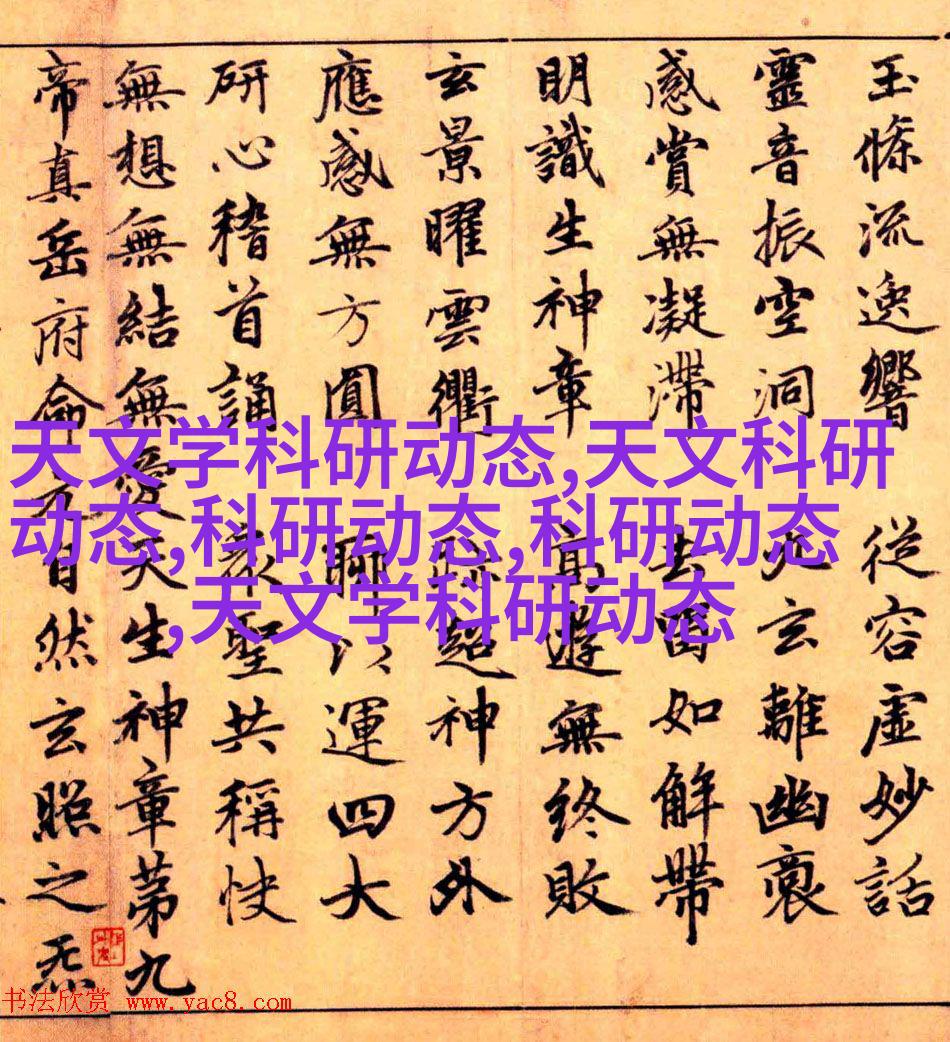 玉條流逸響 從容虛妙話
靈音振空洞 九玄離幽裔
感賞無凝滯 去留如解帶
明識生神章 高遊無終敗
玄景曜雲衢 跡超神方外
應感無方圓 聊以運四大
研心稽首誦 眾聖共稱快
無想無結無愛天生神章第九
帝真岳府命元自然玄照之炁
天文学科研动态,天文科研
动态,科研动态,科研动态
,天文学科研动态
书法欣赏 www.yac8.com